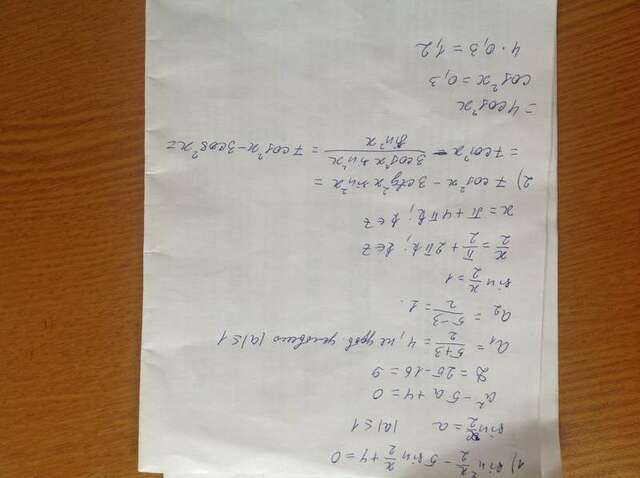 1) sin² x/2 - 5 sin x/2 + 4 = 0
sin x/2 = a |a| ≤ 1
a² - 5a + 4 = 0
D = 25 - 16 = 9
a₁ = (5+3)/2 = 4, не удов. условию |a| ≤ 1
a₂ = (5-3)/2 = 1.
sin x/2 = 1
x/2 = π/2 + 2πk; k ∈ Z
x = π + 4πk; k ∈ Z
2) 7 cos² x - 3 ctg² x sin² x =
= 7 cos² x - (3 cos² x sin² x)/(sin² x) = 7 cos² x - 3 cos² x =
= 4 cos² x
cos² x = 0,3
4 · 0,3 = 1,2